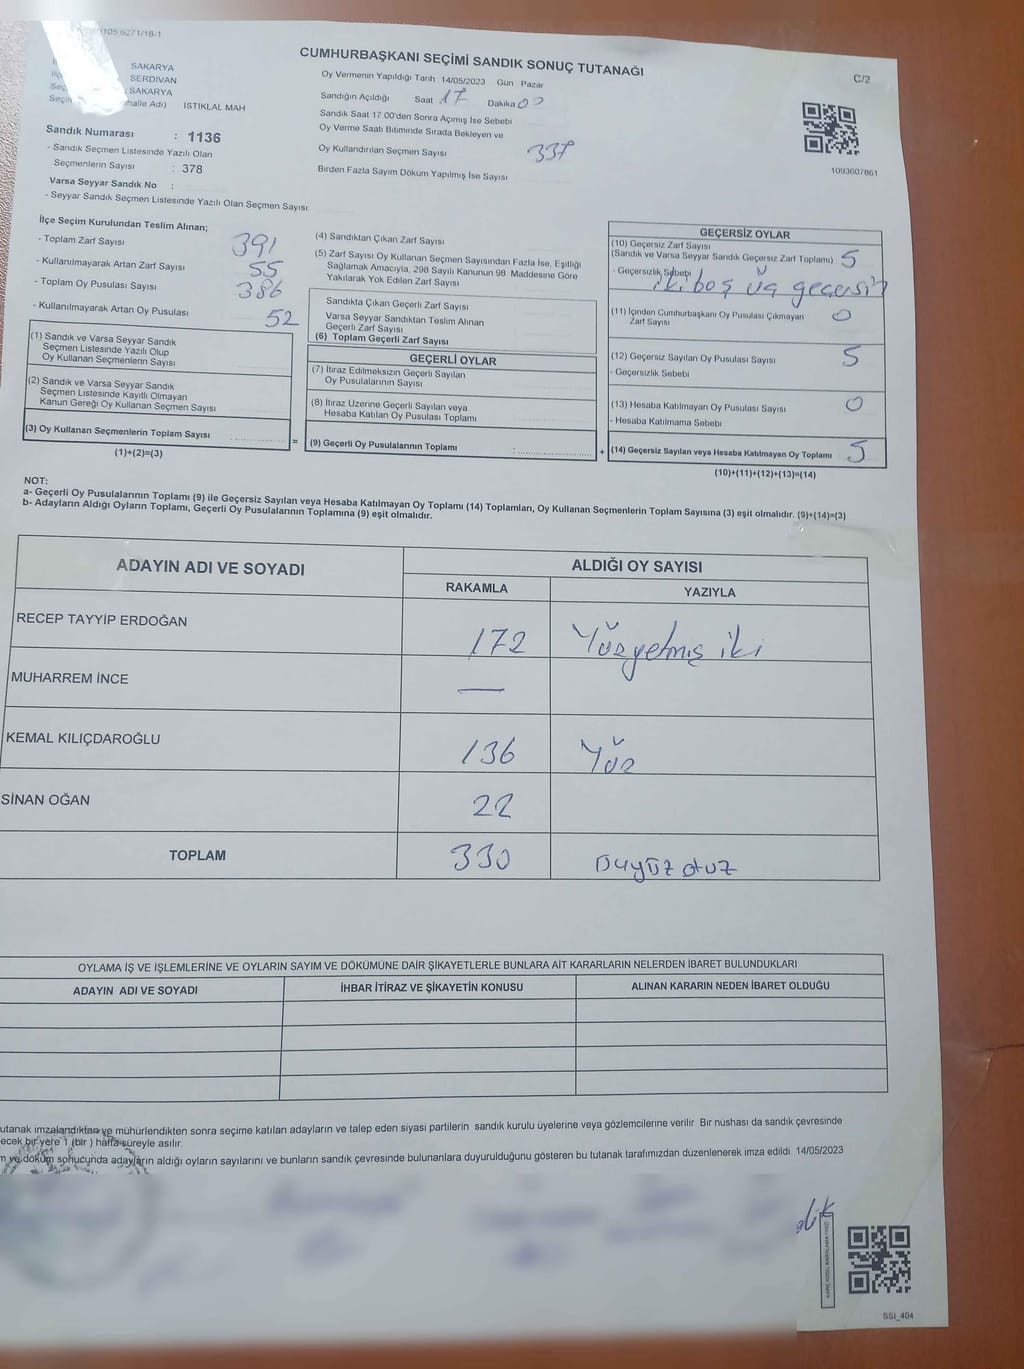 105 6271/18-1
CUMHURBAŞKANI SEÇİMİ SANDIK SONUÇ TUTANAĞI
C/2
SAKARYA
SERDİVAN
SAKARYA
halle Adı) ISTIKLAL MAH
Oy Vermenin Yapıldığı Tarih 14/05/2023 Gün Pazar
Sandığın Açıldığı Saat 17 Dakika 00
Sandık Saat 17 00'den Sonra Açımış Ise Sebebi
Oy Verme Saati Bitiminde Sırada Bekleyen ve
Oy Kullandırılan Seçmen Sayısı 337
Birden Fazla Sayım Döküm Yapılmış Ise Sayısı
1093607861
Sandık Numarası : 1136
- Sandık Seçmen Listesinde Yazılı Olan
Seçmenlerin Sayısı : 378
Varsa Seyyar Sandık No :
- Seyyar Sandık Seçmen Listesinde Yazılı Olan Seçmen Sayısı
İlçe Seçim Kurulundan Teslim Alınan;
- Toplam Zarf Sayısı 391
- Kullanılmayarak Artan Zarf Sayısı 55
- Toplam Oy Pusulası Sayısı 386
- Kullanılmayarak Artan Oy Pusulası 52
(1) Sandık ve Varsa Seyyar Sandık
Seçmen Listesinde Yazılı Olup
Oy Kullanan Seçmenlerin Sayısı
(2) Sandık ve Varsa Seyyar Sandık
Seçmen Listesinde Kayıtlı Olmayan
Kanun Gereği Oy Kullanan Seçmen Sayısı
(3) Oy Kullanan Seçmenlerin Toplam Sayısı =
(1)+(2)=(3)
(4) Sandıktan Çıkan Zarf Sayısı
(5) Zarf Sayısı Oy Kullanan Seçmen Sayısından Fazla İse, Eşitliği
Sağlamak Amacıyla, 298 Sayılı Kanunun 98 Maddesine Göre
Yakılarak Yok Edilen Zarf Sayısı
Sandıkta Çıkan Geçerli Zarf Sayısı
Varsa Seyyar Sandıktan Teslim Alınan
Geçerli Zarf Sayısı
(6) Toplam Geçerli Zarf Sayısı
GEÇERLİ OYLAR
(7) İtiraz Edilmeksizin Geçerli Sayılan
Oy Pusulalarının Sayısı
(8) İtiraz Üzerine Geçerli Sayılan veya
Hesaba Katılan Oy Pusulası Toplamı
(9) Geçerli Oy Pusulalarının Toplamı : +
GEÇERSİZ OYLAR
(10) Geçersiz Zarf Sayısı
(Sandık ve Varsa Seyyar Sandık Geçersiz Zarf Toplamı) 5
- Geçersizlik Sebebi
iki boş üç geçersiz
(11) İçinden Cumhurbaşkanı Oy Pusulası Çıkmayan
Zarf Sayısı 0
(12) Geçersiz Sayılan Oy Pusulası Sayısı 5
- Geçersizlik Sebebi
(13) Hesaba Katılmayan Oy Pusulası Sayısı 0
- Hesaba Katılmama Sebebi
(14) Geçersiz Sayılan veya Hesaba Katılmayan Oy Toplamı 5
(10)+(11)+(12)+(13)=(14)
NOT:
a- Geçerli Oy Pusulalarının Toplamı (9) ile Geçersiz Sayılan veya Hesaba Katılmayan Oy Toplamı (14) Toplamları, Oy Kullanan Seçmenlerin Toplam Sayısına (3) eşit olmalıdır. (9)+(14)=(3)
b- Adayların Aldığı Oyların Toplamı, Geçerli Oy Pusulalarının Toplamına (9) eşit olmalıdır.
ADAYIN ADI VE SOYADI
ALDIĞI OY SAYISI
RAKAMLA YAZIYLA
RECEP TAYYİP ERDOĞAN 172 Yüzyetmiş iki
MUHARREM İNCE —
KEMAL KILIÇDAROĞLU 136 Yüz
SİNAN OĞAN 22
TOPLAM 330 üçyüz otuz
OYLAMA İŞ VE İŞLEMLERİNE VE OYLARIN SAYIM VE DÖKÜMÜNE DAİR ŞİKAYETLERLE BUNLARA AİT KARARLARIN NELERDEN İBARET BULUNDUKLARI
ADAYIN ADI VE SOYADI
İHBAR İTİRAZ VE ŞİKAYETİN KONUSU
ALINAN KARARIN NEDEN İBARET OLDUĞU
utanak imzalandıktan ve mühürlendikten sonra seçime katılan adayların ve talep eden siyasi partilerin sandık kurulu üyelerine veya gözlemcilerine verilir Bir nüshası da sandık çevresinde
ecek bir yere 1 (bir ) hafta süreyle asılır.
m ve döküm sonucunda adayların aldığı oyların sayılarını ve bunların sandık çevresinde bulunanlara duyurulduğunu gösteren bu tutanak tarafımızdan düzenlenerek imza edildi 14/05/2023
SSI_404